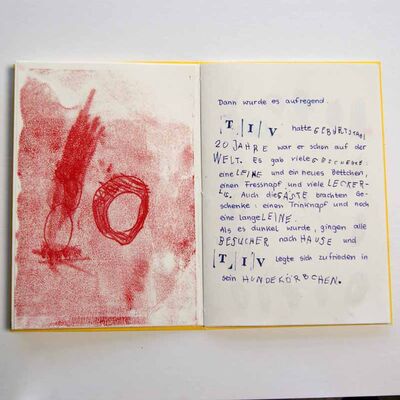 Dann wurde es aufregend.
TIV hatte GEBURTSTAG!
20 JAHRE war er schon auf der
WELT. Es gab viele GESCHENKE:
eine LEINE und ein neues Bettchen,
einen Fressnapf und viele LECKER-
LIS. Auch die GÄSTE brachten Ge-
schenke: einen Trinknapf und noch
eine lange LEINE.
Als es dunkel wurde, gingen alle
BESUCHER nach HAUSE und
TIV legte sich zufrieden in
sein HUNDEKÖRBCHEN.